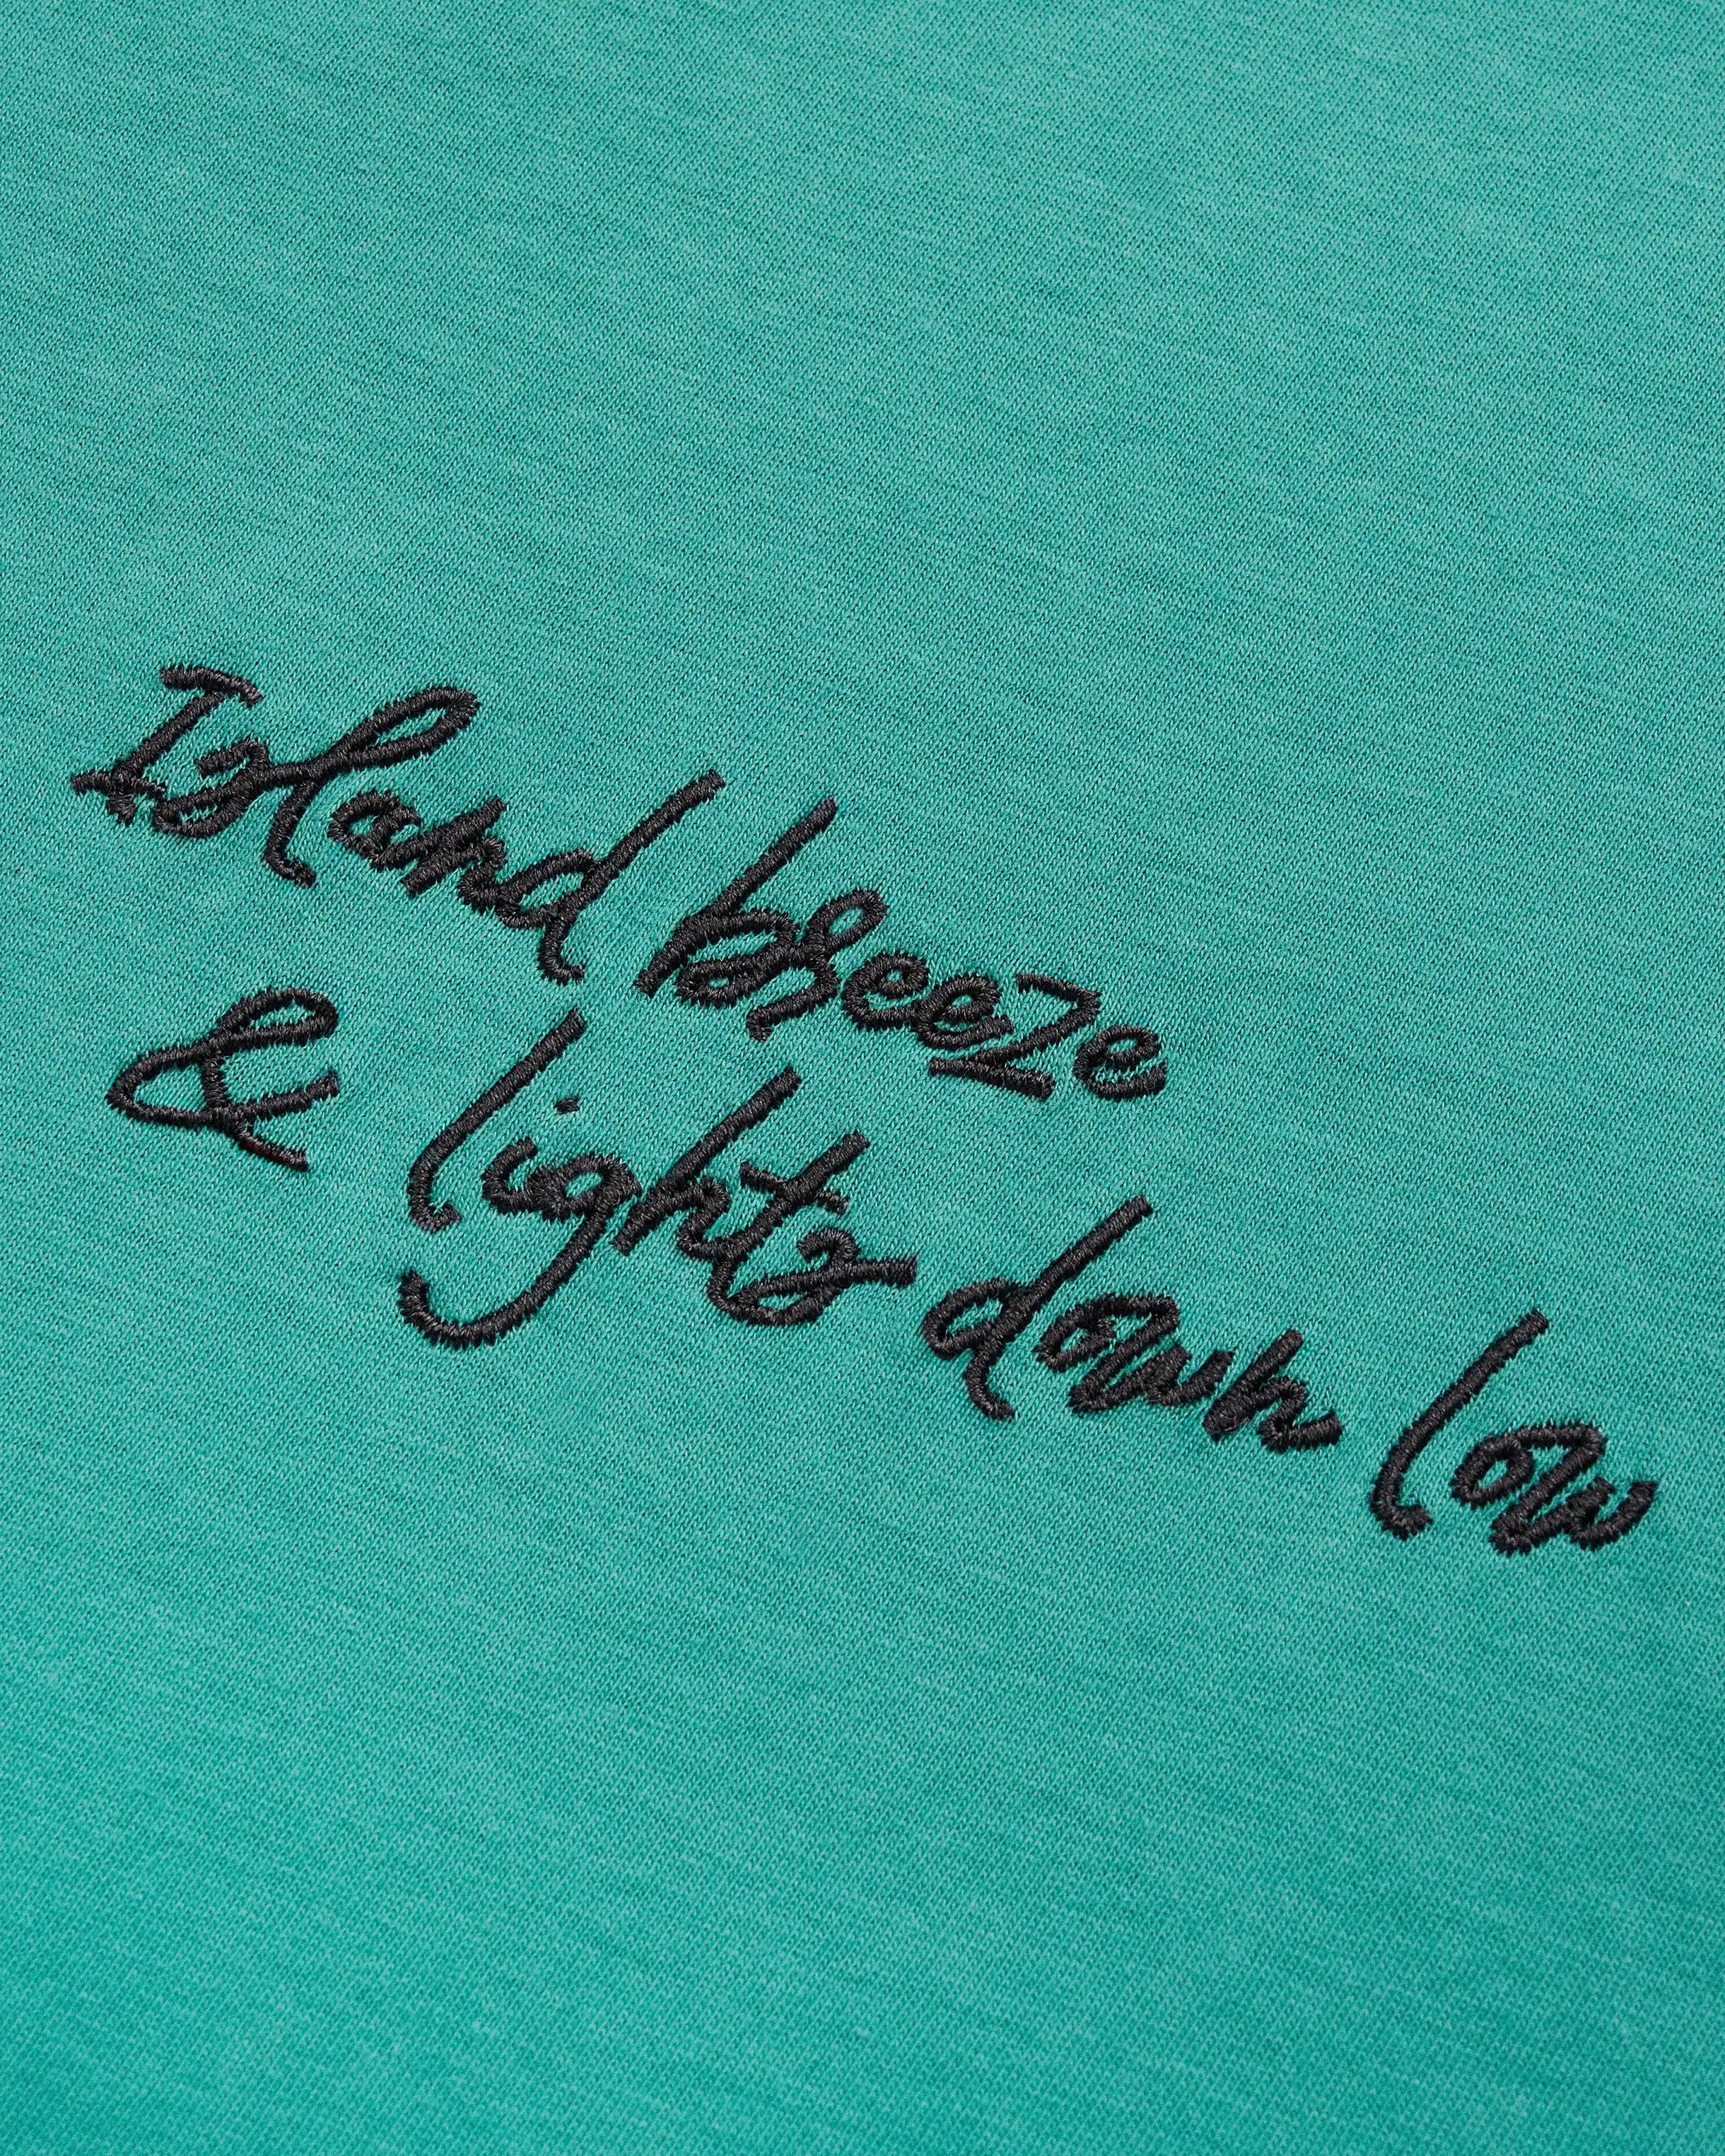 Island breeze
& lights down low